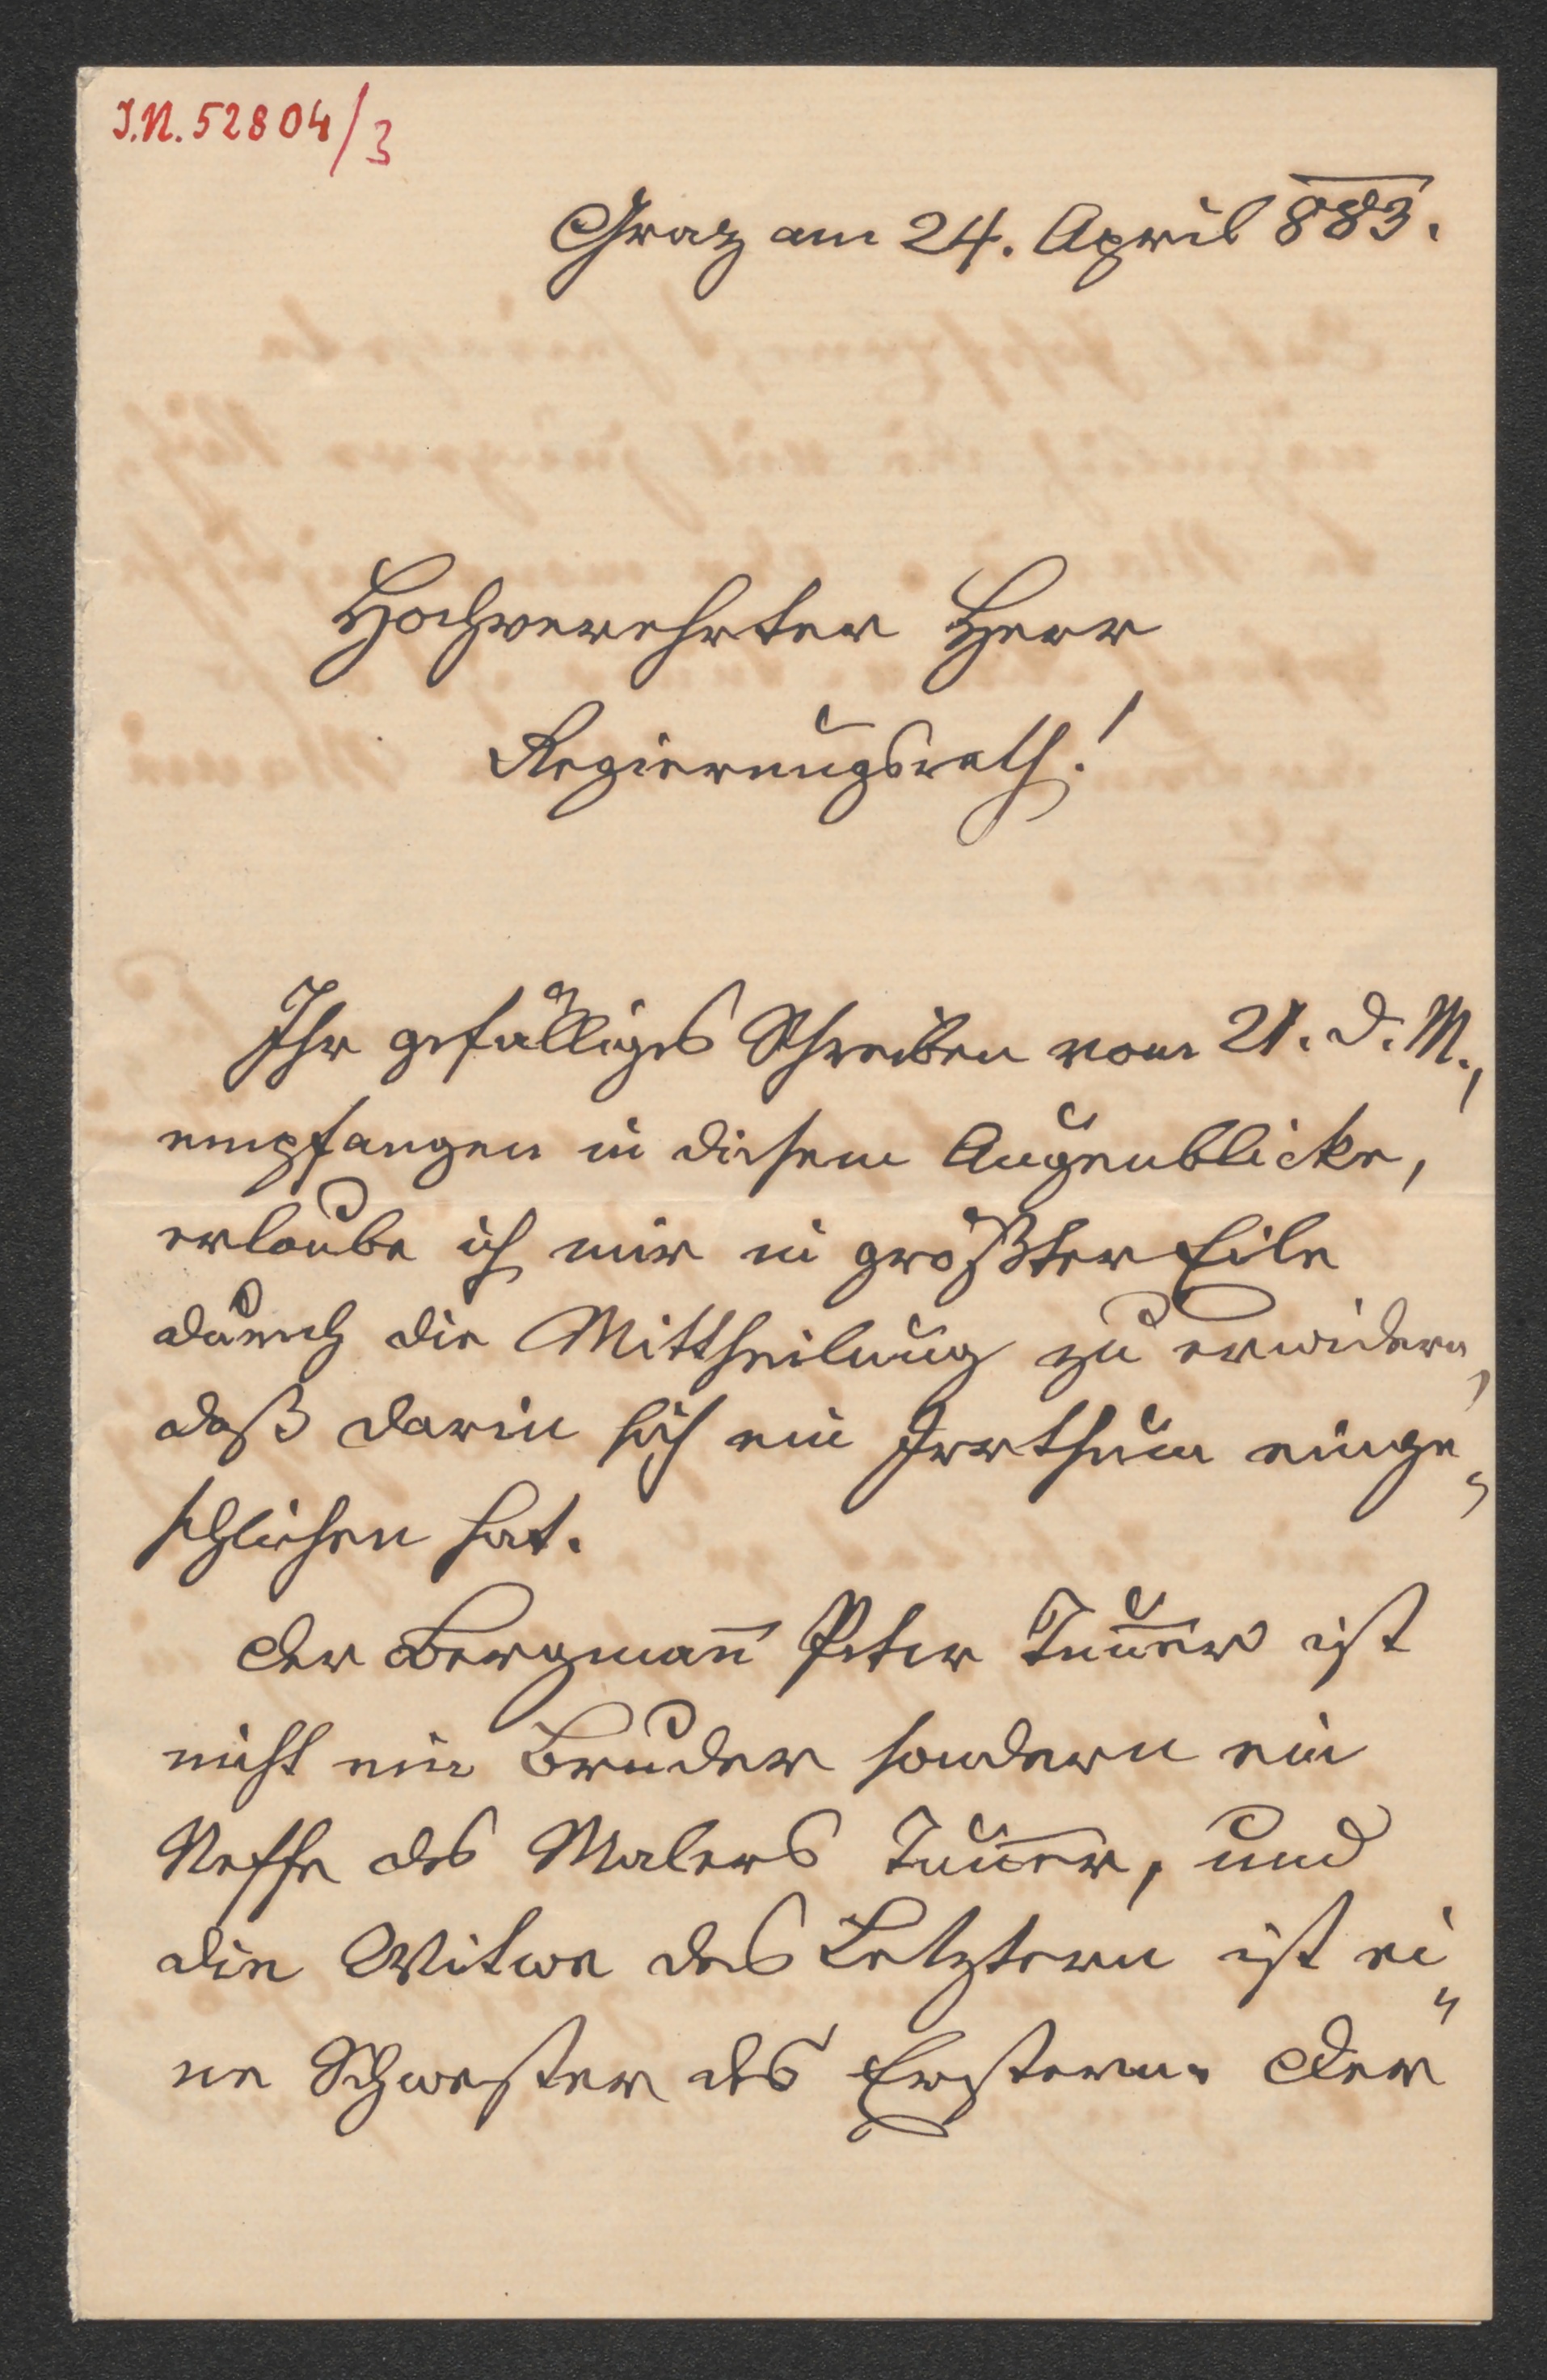 J.N. 52804/3
Graz am 24. April 883.
Hochverehrter Herr
Regierungsrath!
Ihr gefälliges Schreiben vom 21. d. M.,
empfangen in diesem Augenblicke,
erlaube ich mir in größter Eile
durch die Mittheilung zu erwidern,
daß darin sich ein Irrthum einge„
schlichen hat.
Der Bergmañ Peter Tuñer ist
nicht ein Bruder sondern ein
Neffe des Malers Tuñer, und
die Witwe des Letztern ist ei„
ne Schwester des Erstern. Der